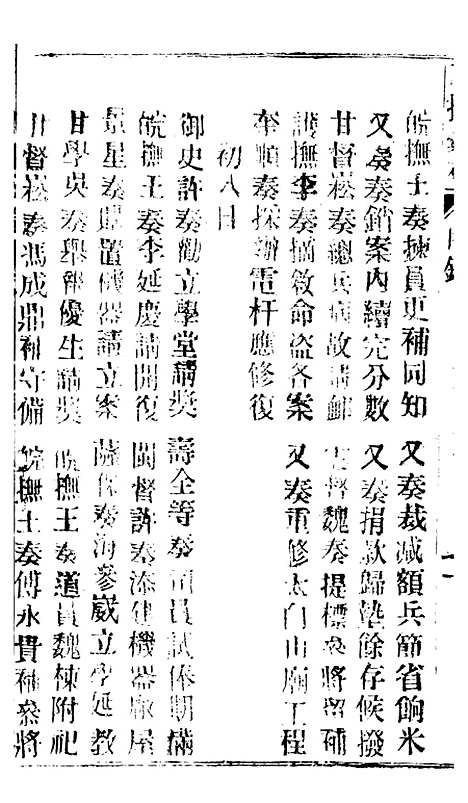 皖撫王奏揀員更補同知
又奏裁减額兵節省餉米
又奏銷案內續完分數
又奏捐款歸墊餘存候撥
甘督崧奏總兵病故請卹
督魏奏提標叅將留補
護撫李奏摘敘命盜各案
又奏重修太白山廟工程
奎順奏採辦電杆應修復
初八日
御史許奏勸立學堂請獎
壽全等奏司員試俸期滿
皖撫王奏李延慶請開復
閩督許奏添建機器廠屋
景星奏購置機器請立案
薩保奏海參崴立學延教
甘學吳奏舉報優生請獎
皖撫王奏道員魏棟附祀
甘督崧奏馮成鼎補守備
皖撫王奏傅永貴補叅將